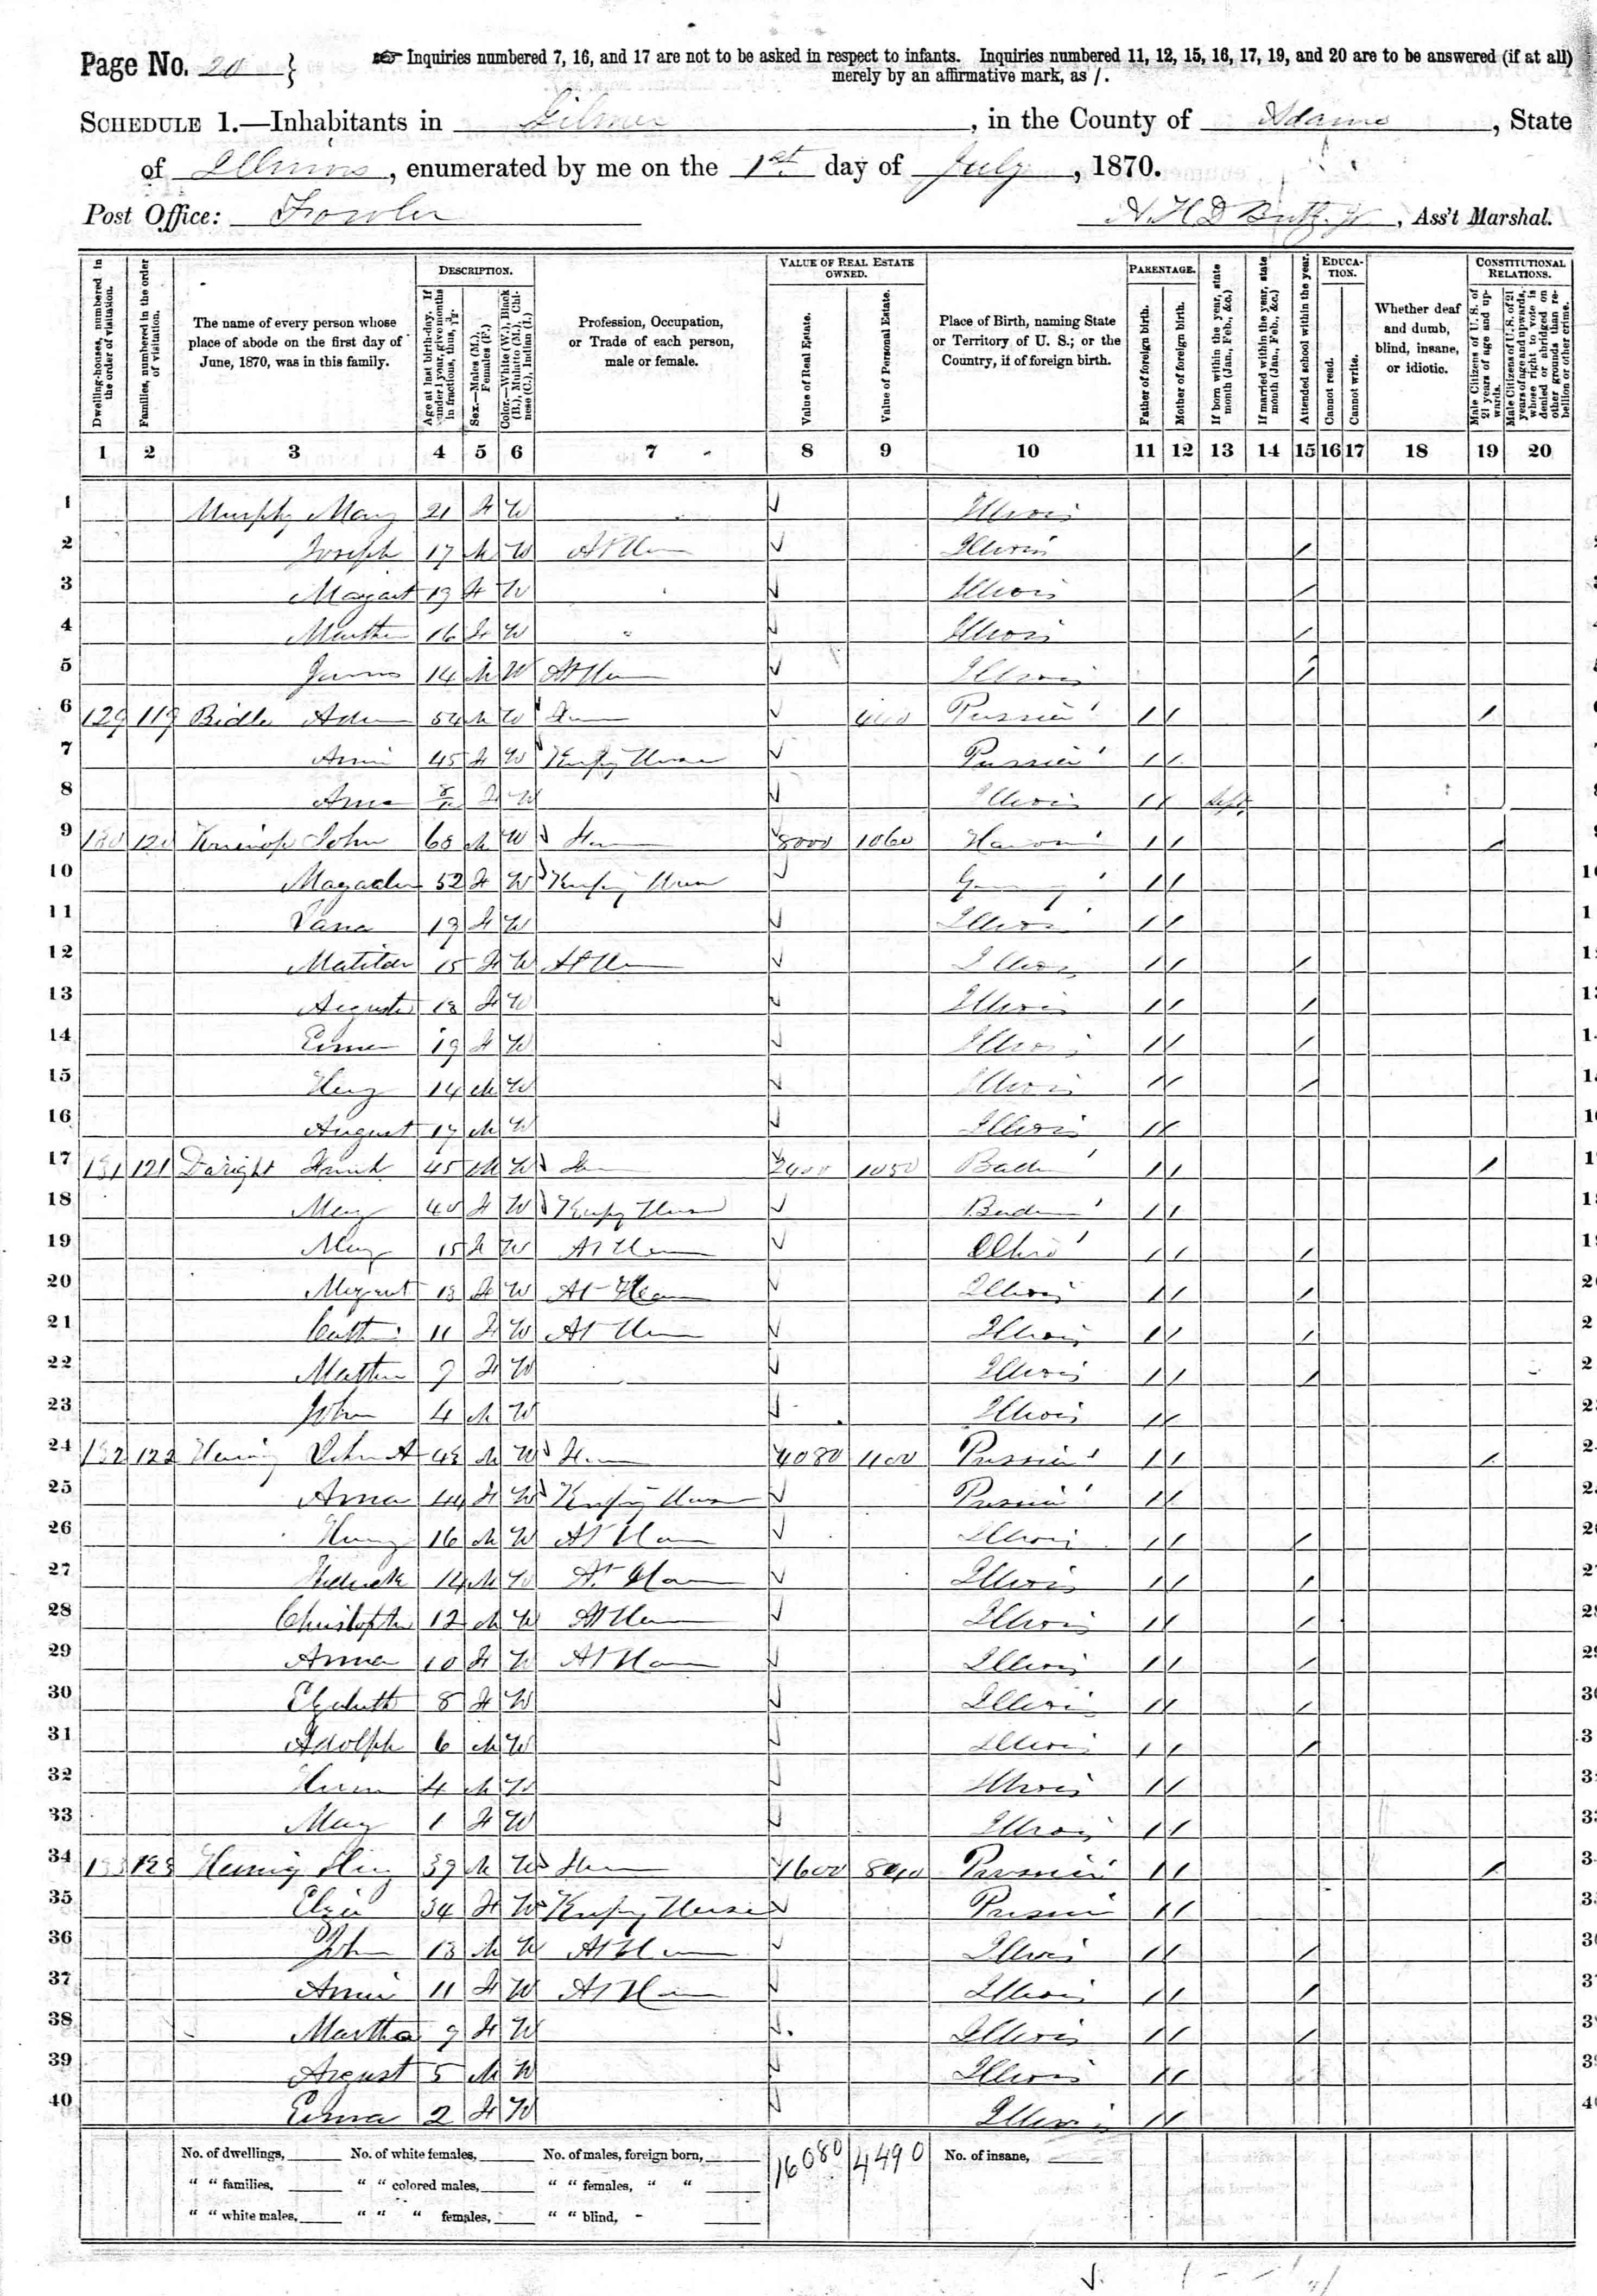 Page No. 20 } ☞ Inquiries numbered 7, 16, and 17 are not to be asked in respect to infants. Inquiries numbered 11, 12, 15, 16, 17, 19, and 20 are to be answered (if at all)
merely by an affirmative mark, as /.
SCHEDULE 1.—Inhabitants in Gilmer, in the County of Adams, State
of Illinois, enumerated by me on the 1st day of July, 1870.
Post Office: Fowler
A. H. D. Buttz, Ass't Marshal.
Dwelling-houses, numbered in the order of visitation.
Families, numbered in the order of visitation.
The name of every person whose place of abode on the first day of June, 1870, was in this family.
DESCRIPTION.
Age at last birth-day. If under 1 year, give months in fractions, thus, 3/12.
Sex.—Males (M.), Females (F.)
Color.—White (W.), Black (B.), Mulatto (M.), Chinese (C.), Indian (I.)
Profession, Occupation, or Trade of each person, male or female.
VALUE OF REAL ESTATE OWNED.
Value of Real Estate.
Value of Personal Estate.
Place of Birth, naming State or Territory of U. S.; or the Country, if of foreign birth.
PARENTAGE.
Father of foreign birth.
Mother of foreign birth.
If born within the year, state month (Jan., Feb., &c.)
If married within the year, state month (Jan., Feb., &c.)
Attended school within the year.
EDUCATION.
Cannot read.
Cannot write.
Whether deaf and dumb, blind, insane, or idiotic.
CONSTITUTIONAL RELATIONS.
Male Citizens of U. S. of 21 years of age and upwards.
Male Citizens of U. S. of 21 years of age and upwards, whose right to vote is denied or abridged on other grounds than rebellion or other crime.
1 2 3 4 5 6 7 8 9 10 11 12 13 14 15 16 17 18 19 20
1 Murphy Mary 21 F W Illinois
2 Joseph 17 M W At Home Illinois /
3 Margaret 19 F W Illinois /
4 Martha 16 F W Illinois /
5 James 14 M W At Home Illinois /
6 129 119 Bidle Adam 54 M W Prussia / / /
7 45 F W Keeping House Prussia / /
8 Anna 8/12 F W Illinois / / Sept
9 130 120 John 60 M W 8000 1060 Hanover / / /
10 52 F W Keeping House Germany / /
11 19 F W Illinois / /
12 Matilda 15 F W At Home Illinois / / /
13 Augusta 13 F W Illinois / / /
14 19 F W Illinois / / /
15 Henry 14 M W Illinois / / /
16 August 17 M W Illinois / /
17 131 121 Daright 45 M W 2400 1050 Baden / / /
18 Mary 40 F W Keeping House Baden / /
19 Mary 15 F W At Home Ohio / / /
20 Margaret 13 F W At Home Illinois / / /
21 11 F W At Home Illinois / / /
22 F W Illinois / / /
23 John 4 M W Illinois / /
24 132 122 Hennig John A 48 M W 4080 1100 Prussia / / /
25 Anna 44 F W Keeping House Prussia / /
26 Henry 16 M W At Home Illinois / / /
27 14 M W At Home Illinois / / /
28 Christopher 12 M W At Home Illinois / / /
29 Anna 10 F W At Home Illinois / / /
30 Elizabeth 8 F W Illinois / / /
31 Adolph 6 M W Illinois / / /
32 4 M W Illinois / /
33 Mary 1 F W Illinois / /
34 133 123 Hennig Henry 39 M W 1600 840 Prussia / / /
35 Eliza 34 F W Keeping House Prussia / /
36 John 13 M W At Home Illinois / / /
37 Annie 11 F W At Home Illinois / / /
38 Martha F W Illinois / / /
39 August 5 M W Illinois / /
40 Emma 2 F W Illinois / /
No. of dwellings, No. of white females, No. of males, foreign born, 16080 4490 No. of insane,
" " families, " " colored males, " " females, " "
" " white males, " " " females, " " blind,